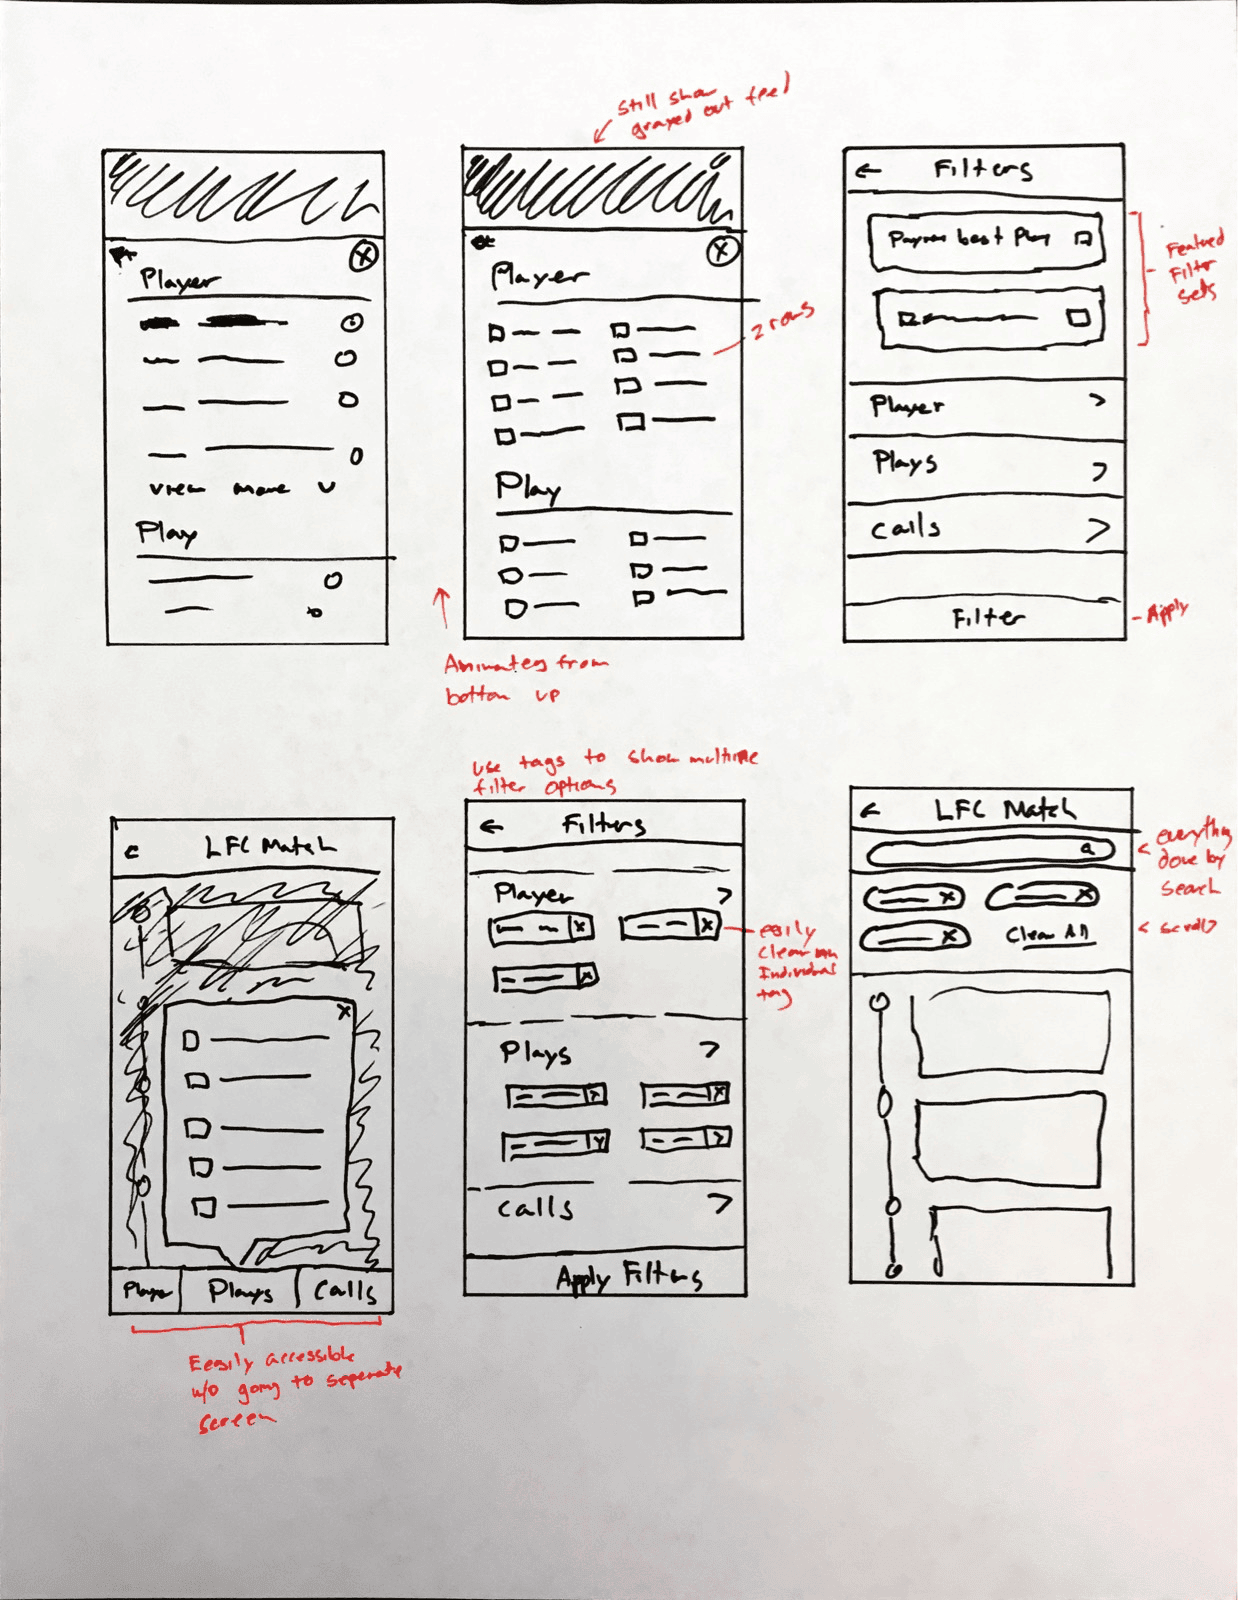 Still show
grayed out feed
Player
view more
Play
Player
2 rows
Play
Animates from
bottom up
Filters
best Play
Featured
Filter
sets
Player
>
Plays
>
Calls
>
Filter
- Apply
LFC Match
X
Player Plays Calls
Eeasily accessible
w/o going to seperate
screen
use tags to show multiple
filter options
Filters
Player >
X X
X
easily
clear an
Individual
tag
Plays >
Calls >
Apply Filters
LFC Match
everything
done by
search
X X
X Clear All
Apply Filters